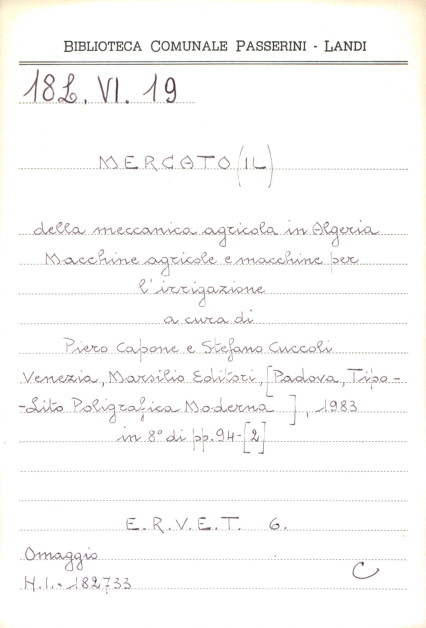 BIBLIOTECA COMUNALE PASSERINI - LANDI
18L. VI. 19
MERCATO (IL)
della meccanica agricola in Algeria
Macchine agricole e macchine per
l'irrigazione
a cura di
Piero Capone e Stefano Cuccoli
Venezia, Marsilio Editori, [Padova, Tipo-
-Lito Poligrafica Moderna ], 1983
in 8° di pp. 94-[2]
E.R.V.E.T. 6.
Omaggio
H.I.- 182733
C